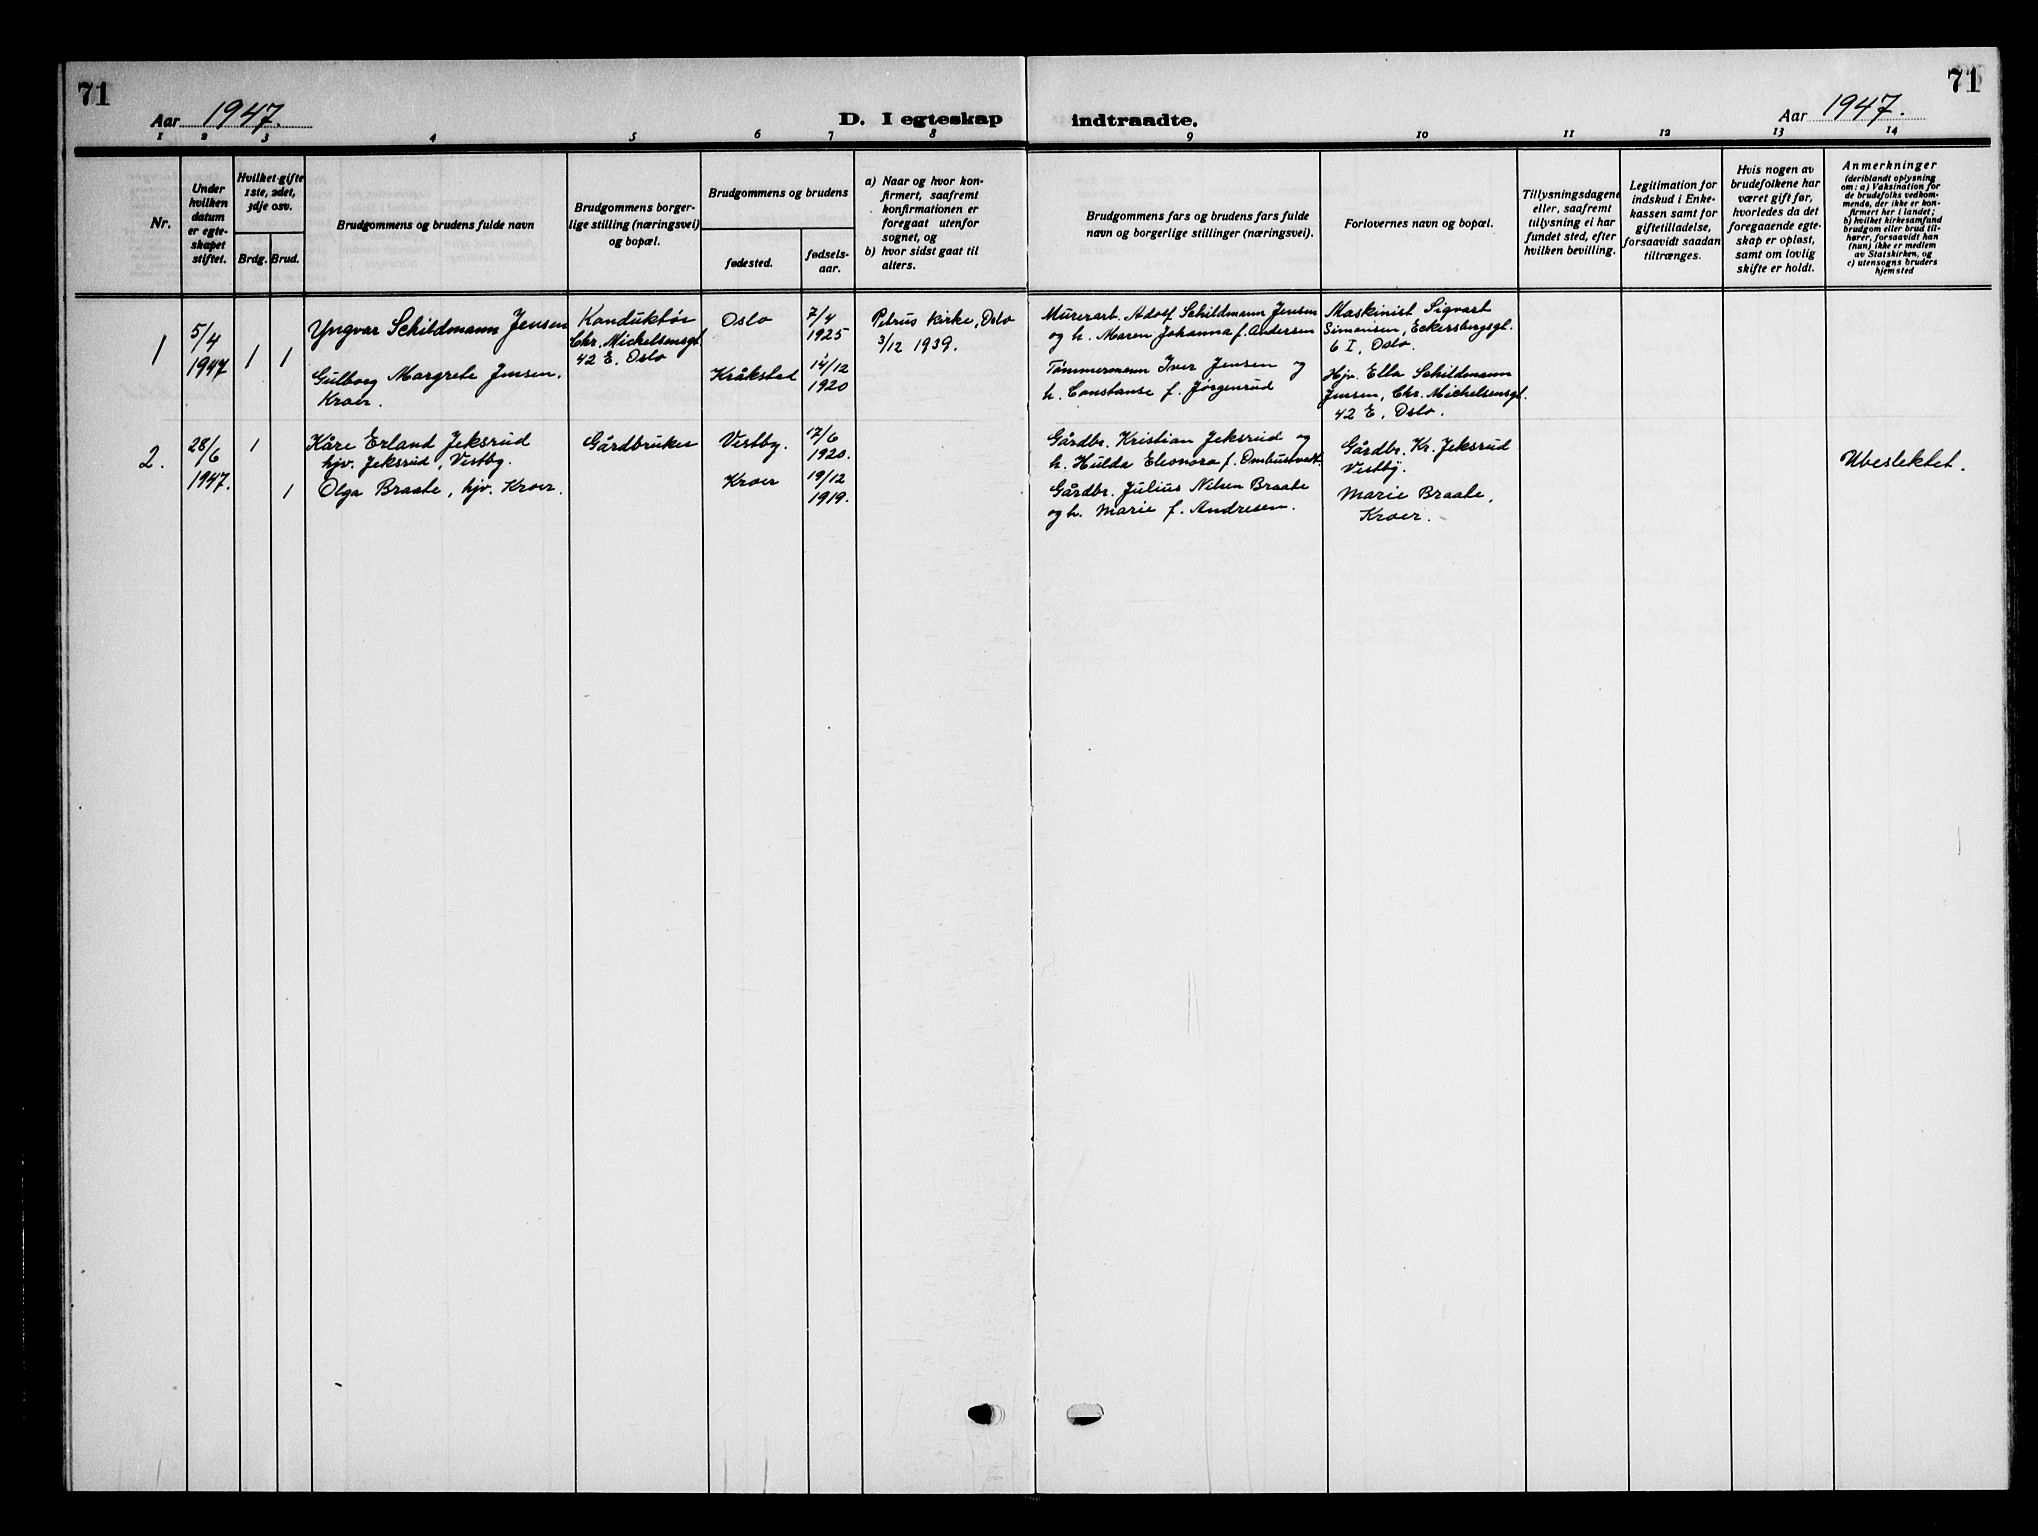 71
Aar 1947.
D. I egteskap
indtraadte.
Aar 1947.
71
1 2 3 4 5 6 7 8 9 10 11 12 13 14
Nr.
Under
hvilken
datum
er egte-
skapet
stiftet.
Hvilket gifte
1ste, 2det,
3dje osv.
Brdg. Brud.
Brudgommens og brudens fulde navn
Brudgommens borger-
lige stilling (næringsvei)
og bopæl.
Brudgommens og brudens
fødested.
fødsels-
aar.
a) Naar og hvor kon-
firmert, saafremt
konfirmationen er
foregaat utenfor
sognet, og
b) hvor sidst gaat til
alters.
Brudgommens fars og brudens fars fulde
navn og borgerlige stillinger (næringsvei).
Forlovernes navn og bopæl.
Tillysningsdagene
eller, saafremt
tillysning ei har
fundet sted, efter
hvilken bevilling.
Legitimation for
indskud i Enke-
kassen samt for
giftetilladelse,
forsaavidt saadan
tiltrænges.
Hvis nogen av
brudefolkene har
været gift før,
hvorledes da det
foregaaende egte-
skap er opløst,
samt om lovlig
skifte er holdt.
Anmerkninger
(deriblandt oplysning
om: a) Vaksination for
de brudefolks vedkom-
mende, der ikke er kon-
firmert her i landet;
b) hvilket kirkesamfund
brudgom eller brud til-
hører, forsaavidt han
(hun) ikke er medlem
av Statskirken, og
c) utensogns bruders
hjemsted
1
5/4
1947
1 1
Yngvar Schildmann Jensen
Gulborg Margrete Jensen.
Kroer.
Konduktør
Chr. Michelsensgt.
42 E. Oslo
Oslo
Kråkstad
7/4
1925
14/12
1920
Petrus kirke, Oslo
3/12 1939.
Murerarb. Adolf Schildmann Jensen
og h. Maren Johanna f. Andersen
Tømmermann Iver Jensen og
h. Constanse f. Jørgenrud
Maskinist Sigvart
Simonsen, Eckersbergsgt.
6 I, Oslo.
Hjv. Ella Schildmann
Jensen, Chr. Michelsensgt.
42 E, Oslo.
2.
28/6
1947.
1
1
Kåre Erland Jeksrud
hjv. Jeksrud, Vestby.
Olga Braate, hjv. Kroer.
Gårdbruker
Vestby.
Kroer
17/6
1920.
19/12
1919.
Gårdbr. Kristian Jeksrud og
h. Hulda Eleonora f. Ombustvedt.
Gårdbr. Julius Nilsen Braate
og h. Marie f. Andresen.
Gårdbr. Kr. Jeksrud
Vestby.
Marie Braate,
Kroer.
Ubeslektet.